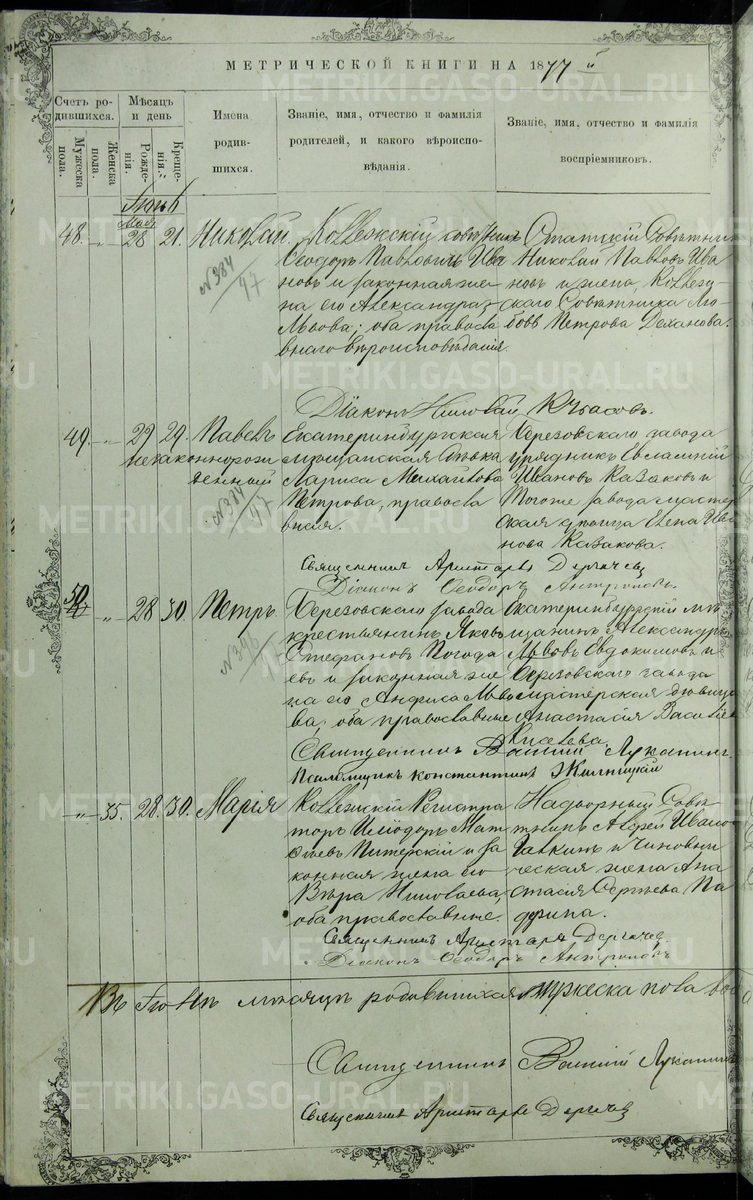 МЕТРИЧЕСКОЙ КНИГИ НА 1877 й
Счетъ родившихся.
Мужеска пола.
Женска пола.
Мѣсяцъ и день
Рожденія.
Крещенія.
Имена родившихся.
Званіе, имя, отчество и фамилія родителей, и какого вѣроисповѣданія.
Званіе, имя, отчество и фамилія воспріемниковъ.
Іюнь
Мая
48. " 28 21. Николай.
№ 384
47
Коллежскій совѣтникъ
Ѳеодоръ Павловичъ Ива
новъ и законная же
на его Александра
Львова; оба правосла
внаго вѣроисповѣданія.
Статскій Совѣтникъ
Николай Павловъ Ива
новъ и жена Коллеж
скаго Совѣтника Лю
бовь Петрова Деханова.
Діаконъ Николай
49. " 29 29. Павелъ
незаконнорож
денный
Екатеринбургская
мѣщанская дѣвка
Лариса Михайлова
Петрова, правосла
вная.
Березовскаго завода
урядникъ Евлампій
Ивановъ Казаковъ и
тогоже завода мастер
ская дѣвица Елена Ива
нова Казакова.
Священникъ Аристархъ Дергачевъ
Діаконъ Ѳеодоръ Антроповъ.
50 " 28 30. Петръ.
Березовскаго завода
крестьянинъ Яковъ
Стефановъ Погода
евъ и законная же
на его Анфиса Льво
ва, оба православные
Екатеринбургскій мѣ
щанинъ Александръ
Львовъ Евдокимовъ и
Березовскаго завода
мастерская дѣвица
Анастасія Василіева
Киселева.
Священникъ Василій Луканинъ.
Псаломщикъ Константинъ
" 35. 28. 30. Марія
Коллежскій Регистра
торъ Иліодоръ Мат
ѳіевъ Питерскій и за
конная жена его
Вѣра Николаева,
оба православные.
Надворный Совѣ
тникъ Андрей Ивано
Галкинъ и чиновни
ческая жена Ана
стасія Сергѣева Па
дрина.
Священникъ Аристархъ Дергачевъ.
Діаконъ Ѳеодоръ Антроповъ
Въ Іюнѣ мѣсяцѣ родившихся мужеска пола
Священникъ Василій Луканинъ
Священникъ Аристархъ Дергачевъ
METRIKI.GASO-URAL.RU